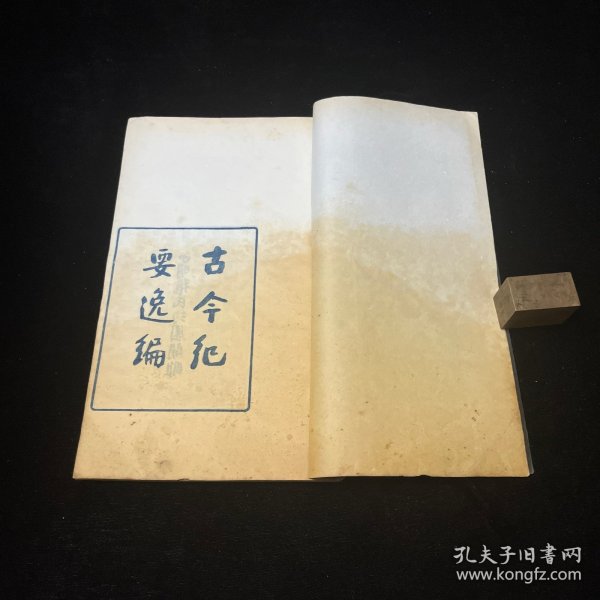 古今纪
要逸编
孔夫子旧书网
www.kongfz.com